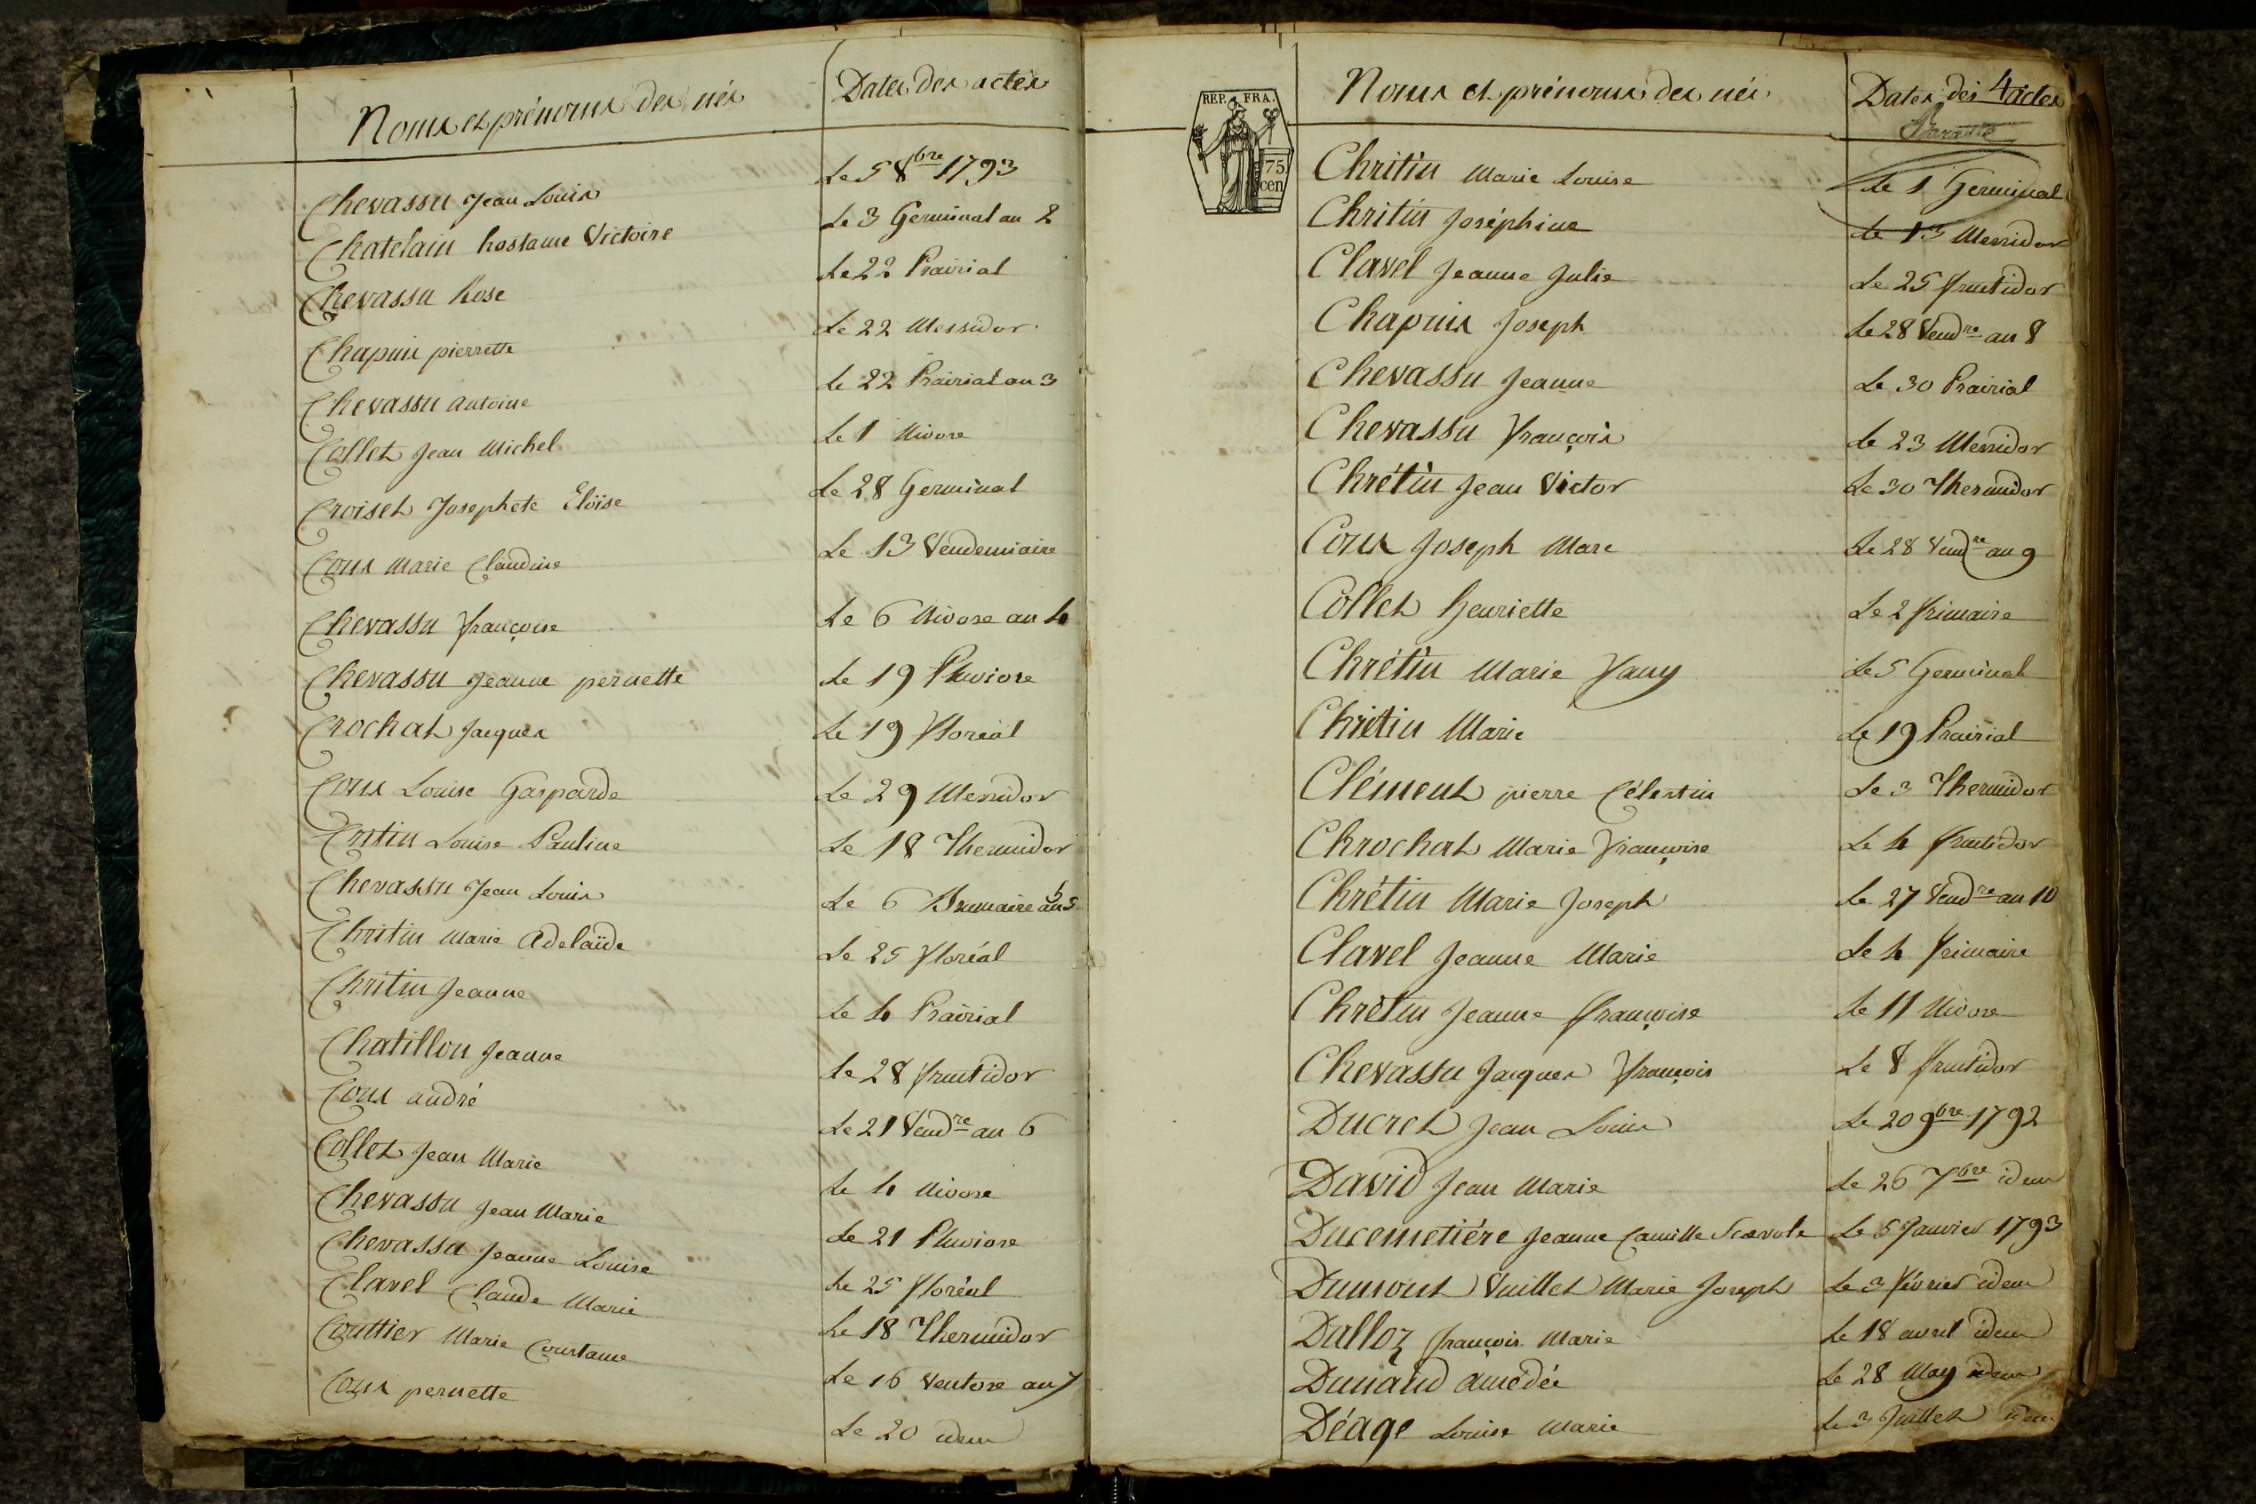 Noms et prénoms des nés Dates des actes
Chevassu Jean Louis Le 5 8bre 1793
Chatelain hostame Victoire Le 3 Germinal an 2
Chevassu Rose Le 22 Prairial
Chapuis pierrette Le 22 Messidor
Chevassu antoine Le 22 Prairial an 3
Collet Jean Michel Le 1 Nivose
Croiset Josephete Eloïse Le 28 Germinal
Cous Marie Claudine Le 13 Vendemiaire
Chevassu françoise Le 6 Nivose an 4
Chevassu Jeanne pernette Le 19 Pluviose
Crochat Jacques Le 19 floréal
Cous Louise Gasparde Le 29 Messidor
Critin Louise Pauline Le 18 Thermidor
Chevassu Jean Louis Le 6 Brumaire an 5
Chritin Marie Adelaïde Le 25 floréal
Chritin Jeanne Le 4 Prairial
Chatillon Jeanne Le 28 fructidor
Cous andré Le 21 Vendre an 6
Collet Jean Marie Le 4 Nivose
Chevassu Jean Marie Le 21 Pluviose
Chevassu Jeanne Louise Le 25 floréal
Clavel Claude Marie Le 18 Thermidor
Couttier Marie Constance Le 16 Ventose an 7
Cous pernette Le 20 idem
REP. FRA.
75
cen
Noms et prénoms des nés Dates des Actes
Chritin Marie Louise Le 1 Germinal
Chritin Joséphine Le 13 Messidor
Clavel Jeanne Julie Le 25 fructidor
Chapuis Joseph Le 28 Vendre an 8
Chevassu Jeanne Le 30 Prairial
Chevassu françois Le 23 Messidor
Chrétin Jean Victor Le 30 Thermidor
Cous Joseph Marc Le 28 Vendre an 9
Collet henriette Le 2 frimaire
Chrétin Marie Fany Le 5 Germinal
Chrétin Marie Le 19 Prairial
Clément pierre Célestin Le 3 Thermidor
Chrochat Marie françoise Le 4 fructidor
Chrétin Marie Joseph Le 27 Vendre an 10
Clavel Jeanne Marie Le 4 frimaire
Chretin Jeanne françoise Le 11 Nivose
Chevassu Jacques françois Le 8 fructidor
Ducret Jean Louis Le 20 9bre 1792
David Jean Marie Le 26 7bre idem
Ducemetiére Jeanne Camille Scævola Le 5 Janvier 1793
Dumont Vuillet Marie Joseph Le 3 février idem
Dalloz françois Marie Le 18 avril idem
Dunand amédée Le 28 May idem
Déage Louise Marie Le 3 Juillet idem